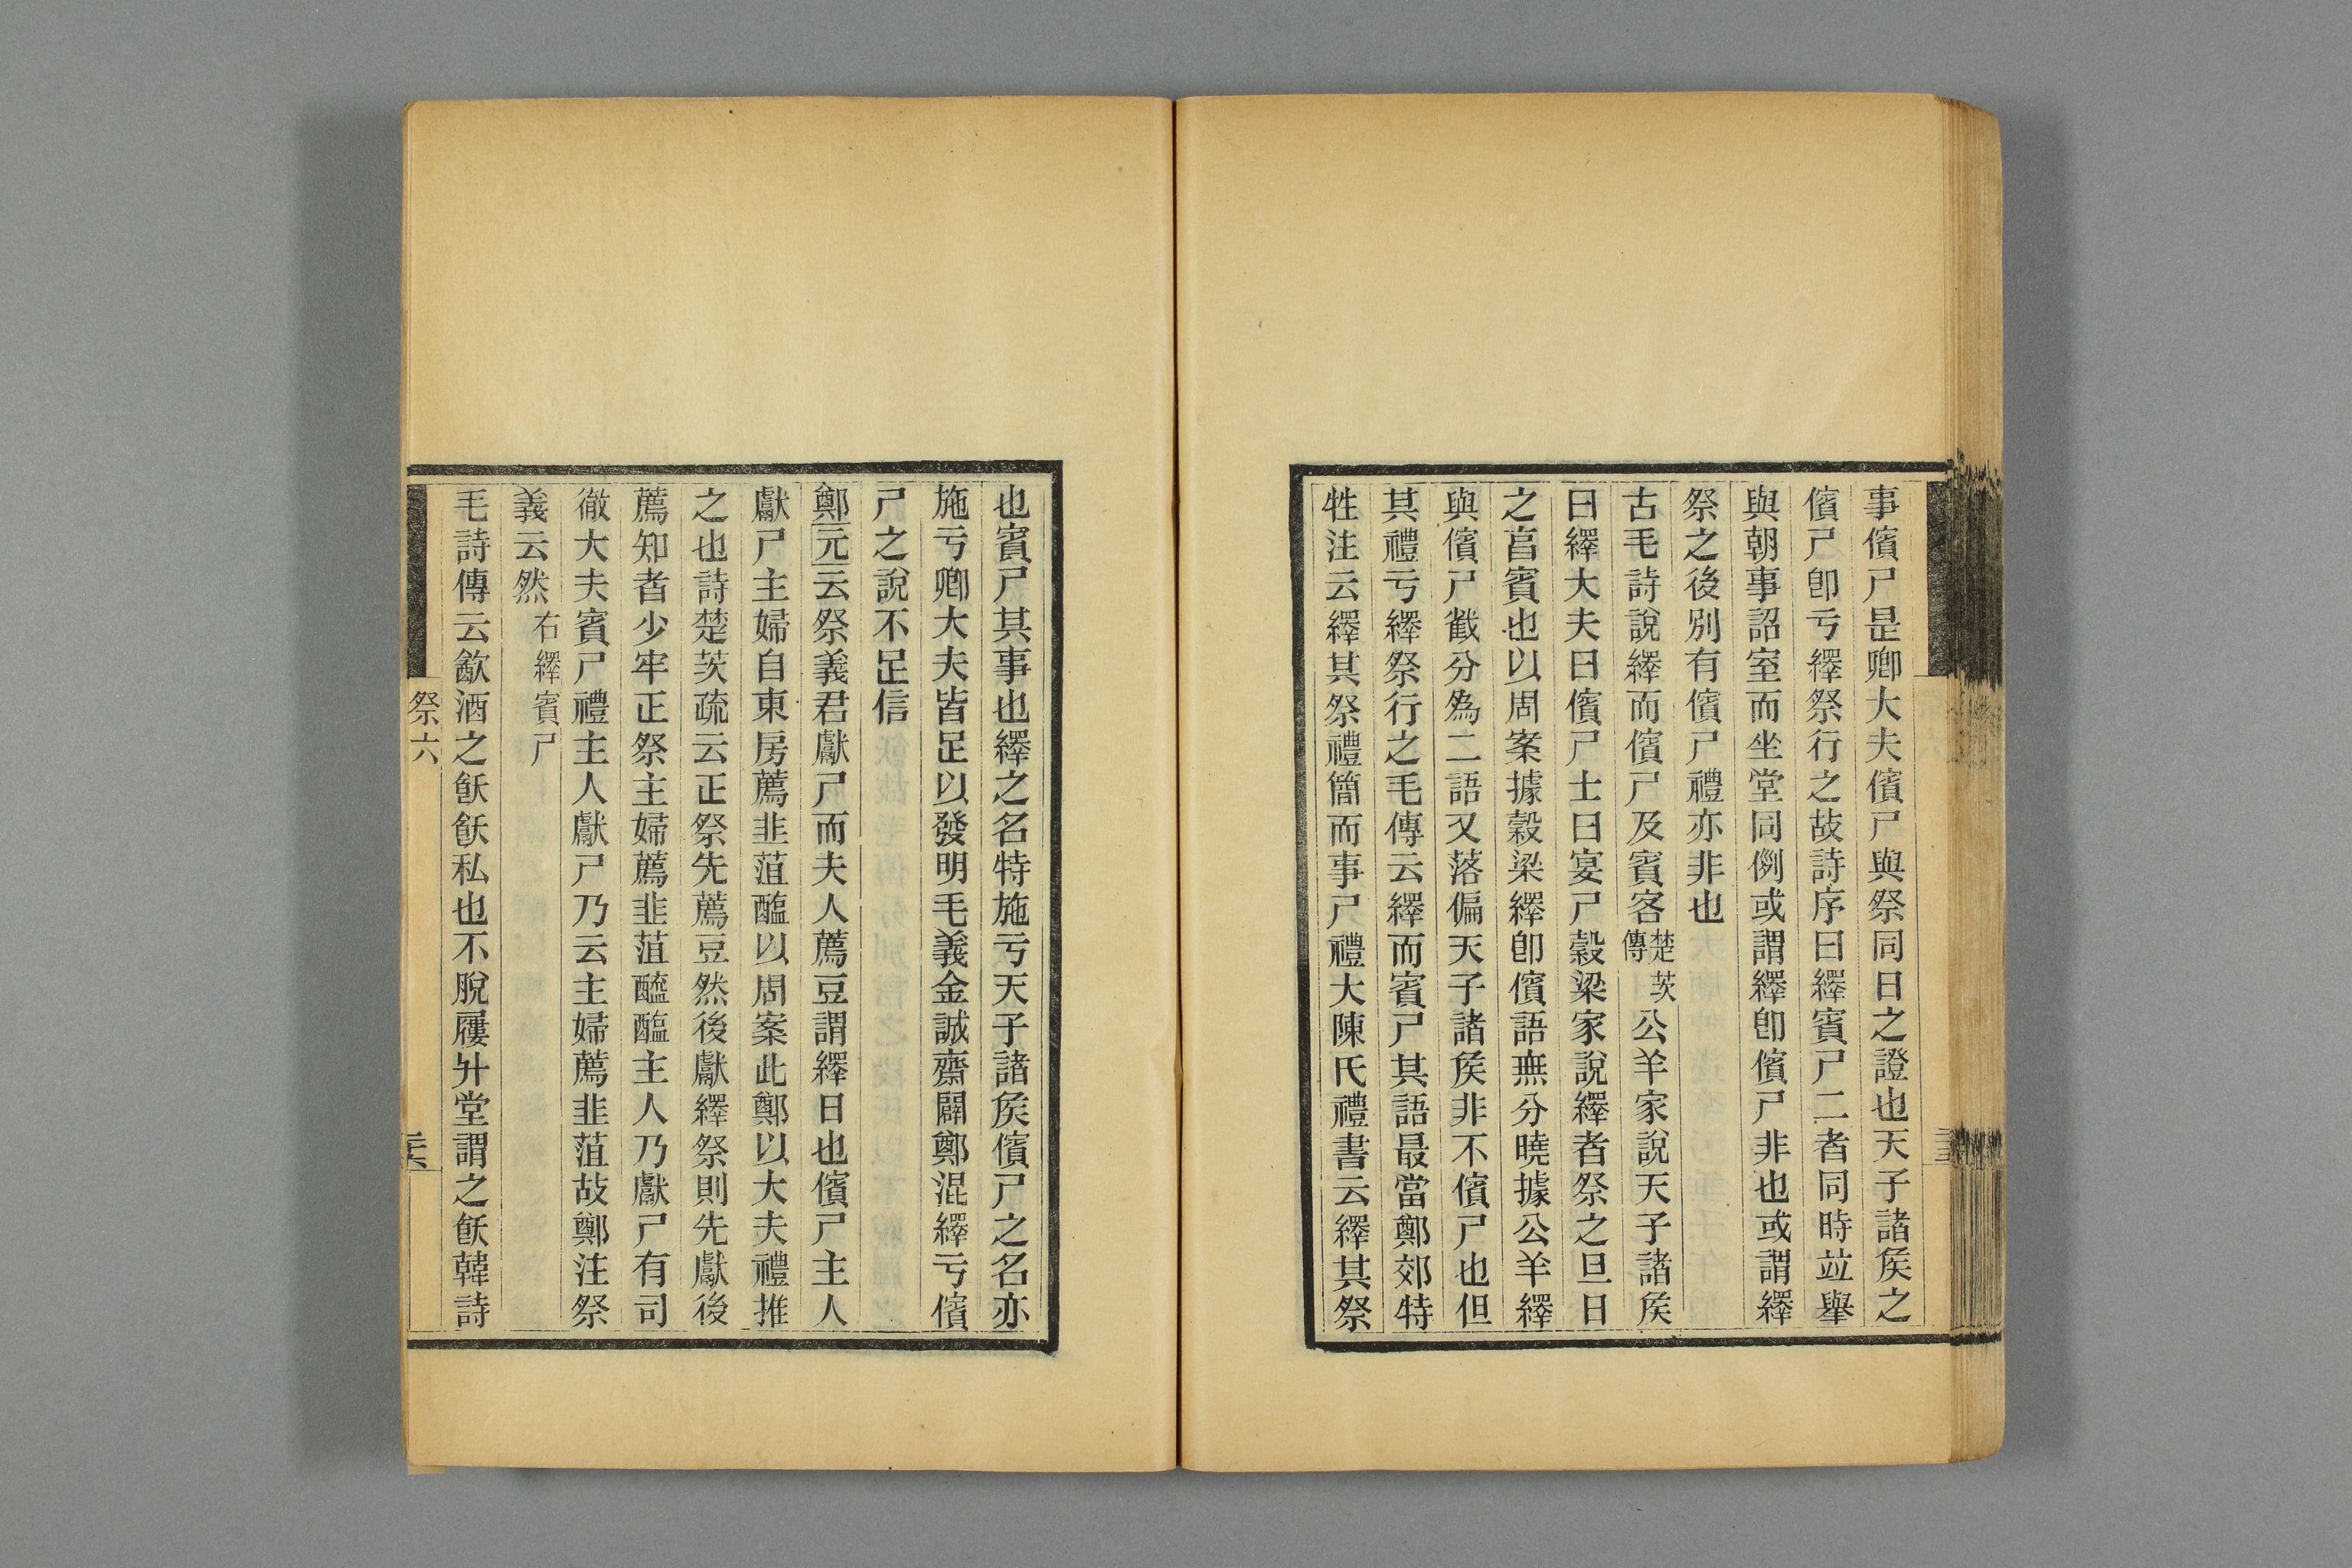 事儐尸是卿大夫儐尸與祭同日之證也天子諸矦之
儐尸卽亏繹祭行之故詩序曰繹賓尸二者同時竝舉
與朝事詔室而坐堂同例或謂繹卽儐尸非也或謂繹
祭之後別有儐尸禮亦非也
古毛詩說繹而儐尸及賓客楚茨傳公羊家說天子諸矦
曰繹大夫曰儐尸士曰宴尸穀梁家說繹者祭之旦日
之亯賓也以周案據穀梁繹卽儐語無分曉據公羊繹
與儐尸截分爲二語又落偏天子諸矦非不儐尸也但
其禮亏繹祭行之毛傳云繹而賓尸其語最當鄭郊特
牲注云繹其祭禮簡而事尸禮大陳氏禮書云繹其祭
也賓尸其事也繹之名特施亏天子諸矦儐尸之名亦
施亏卿大夫皆足以發明毛義金誠齋闢鄭混繹亏儐
尸之說不足信
鄭元云祭義君獻尸而夫人薦豆謂繹日也儐尸主人
獻尸主婦自東房薦韭菹醢以周案此鄭以大夫禮推
之也詩楚茨疏云正祭先薦豆然後獻繹祭則先獻後
薦知者少牢正祭主婦薦韭菹醓醢主人乃獻尸有司
徹大夫賓尸禮主人獻尸乃云主婦薦韭菹故鄭注祭
義云然 右繹賓尸
毛詩傳云歙酒之飫飫私也不脫屨升堂謂之飫韓詩
祭六